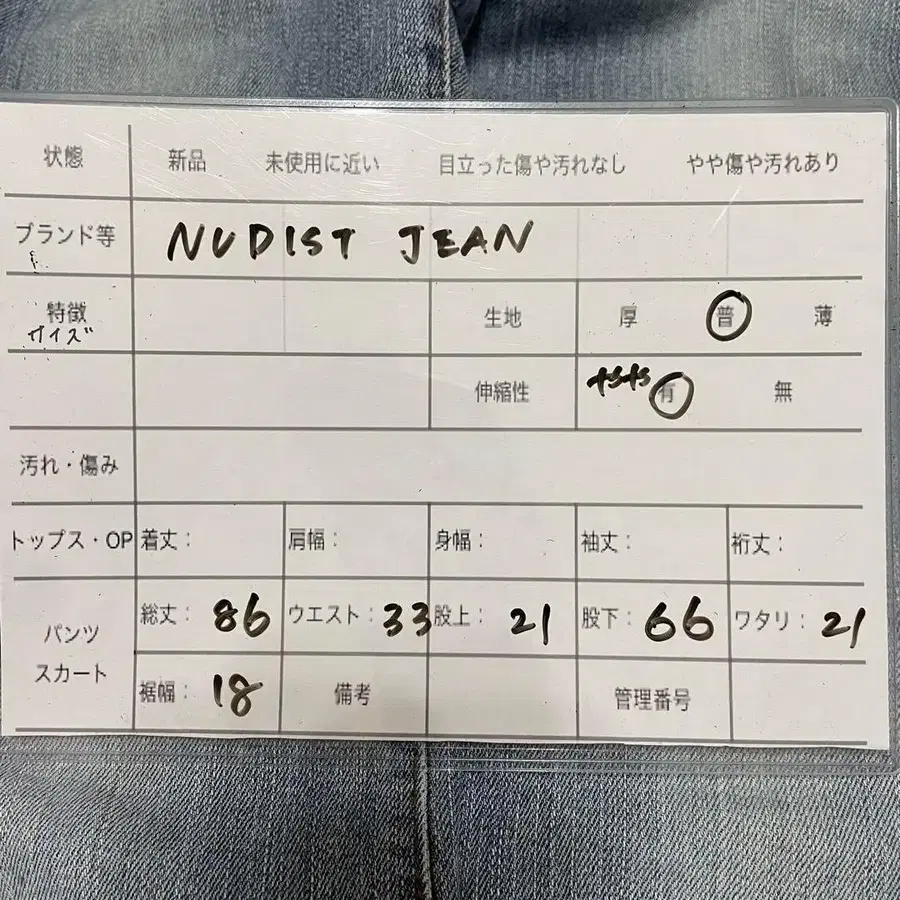 状態 新品 未使用に近い 目立った傷や汚れなし やや傷や汚れあり
ブランド等 NUDIST JEAN
特徴 生地 厚 普 薄
サイズ
伸縮性 やや 有 無
汚れ・傷み
トップス・OP 着丈： 肩幅： 身幅： 袖丈： 裄丈：
パンツ 総丈： 86 ウエスト： 33 股上： 21 股下： 66 ワタリ： 21
スカート
裾幅： 18 備考 管理番号